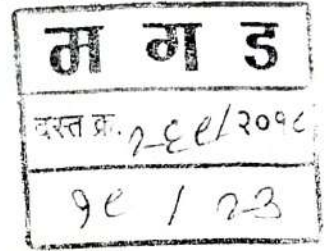 म ग ड
दस्त क्र. २६९/२०१८
१९ / २३